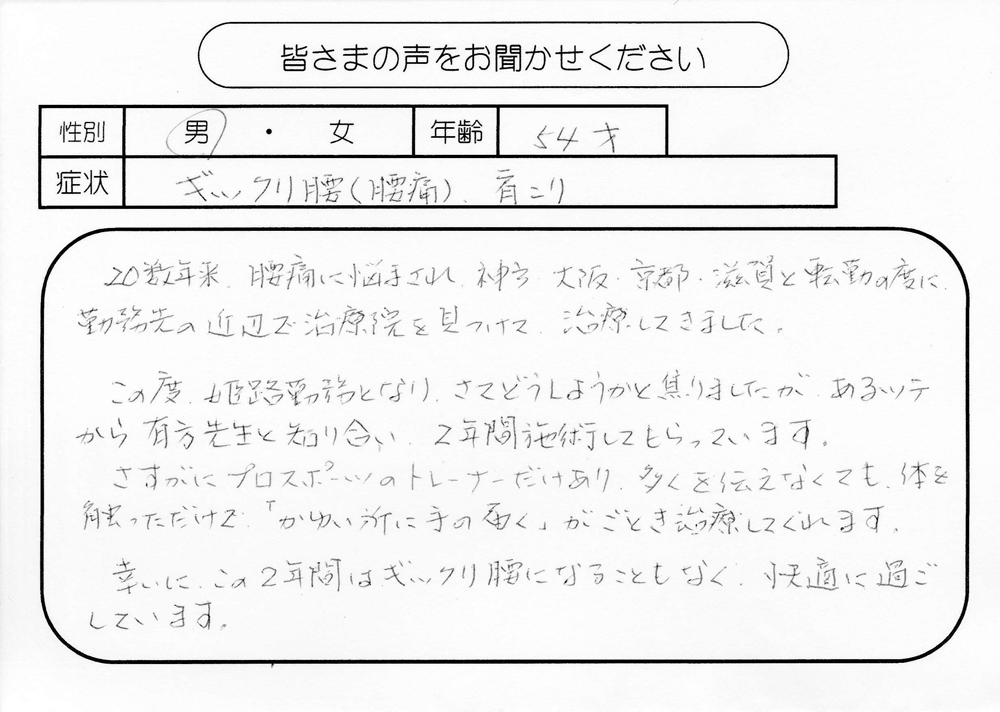 皆さまの声をお聞かせください
性別 男 ・ 女 年齢 54才
症状 ギックリ腰(腰痛)、肩こり
20数年来、腰痛に悩まされ、神戸・大阪・京都・滋賀と転勤の度に、
勤務先の近辺で治療院を見つけて、治療してきました。
この度、姫路勤務となり、さてどうしようかと焦りましたが、あるツテ
から有方先生と知り合い、2年間施術してもらっています。
さすがにプロスポーツのトレーナーだけあり、多くを伝えなくても、体を
触っただけで、「かゆい所に手の届く」がごとき治療してくれます。
幸いに、この2年間はギックリ腰になることもなく、快適に過ご
しています。